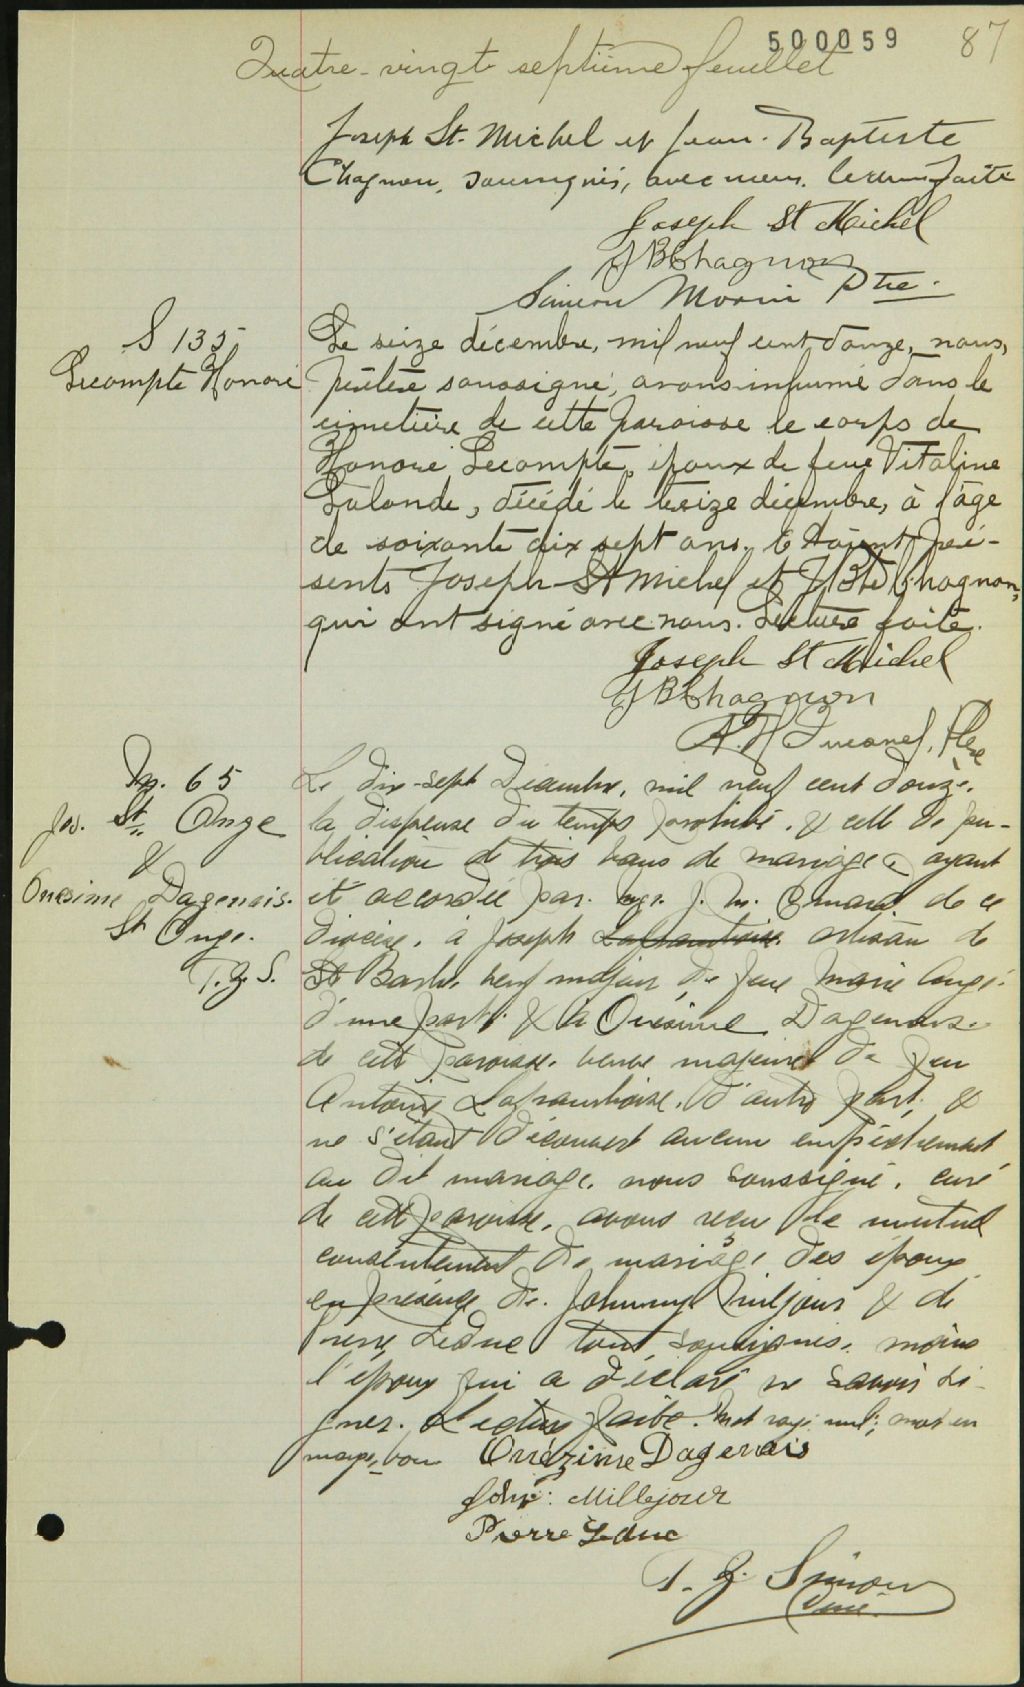 500059
87
Quatre-vingt septième feuillet
Joseph St. Michel et Jean-Baptiste
Chagnon, soussignés, avec nous. Lecture faite
Joseph St Michel
J B Chagnon
Siméon Morin Ptre.
S 135
Lecompte Honoré
Le seize décembre, mil neuf cent douze, nous,
prêtre soussigné, avons inhumé dans le
cimetière de cette paroisse le corps de
Honoré Lecompte, époux de feue Vitaline
Lalonde, décédé le treize décembre, à l'âge
de soixante dix sept ans. Etaient pré-
sents Joseph St Michel et J Bte Chagnon,
qui ont signé avec nous. Lecture faite.
Joseph St Michel
J B Chagnon
Ptre
M. 65
Jos. St Ange
&
Onésime Dagenais.
St Ange.
T.Z.S.
Le dix-sept Décembre, mil neuf cent douze,
la dispense du temps prohibé, & celle de pu-
blication de trois bans de mariage ayant
été accordée par Mgr. J. M. Emard de ce
diocèse, à Joseph Laframboise artisan de
St Barbe, veuf majeur de feue Marie Augé
d'une part & à Onésime Dagenais
de cette paroisse, veuve majeure de feu
Antoine Laframboise, d'autre part; &
ne s'étant découvert aucun empêchement
au dit mariage, nous soussigné, curé
de cette paroisse, avons reçu le mutuel
consentement de mariage des époux
en présence de Johnny Miljour & de
Pierre Leduc tous soussignés, moins
l'époux qui a déclaré ne savoir si-
gner. Lecture faite. Mot rayé nul; mot en
marge, bon
Onézime Dagenais
John: Millejour
Pierre Leduc
T. Z. Simon
Curé